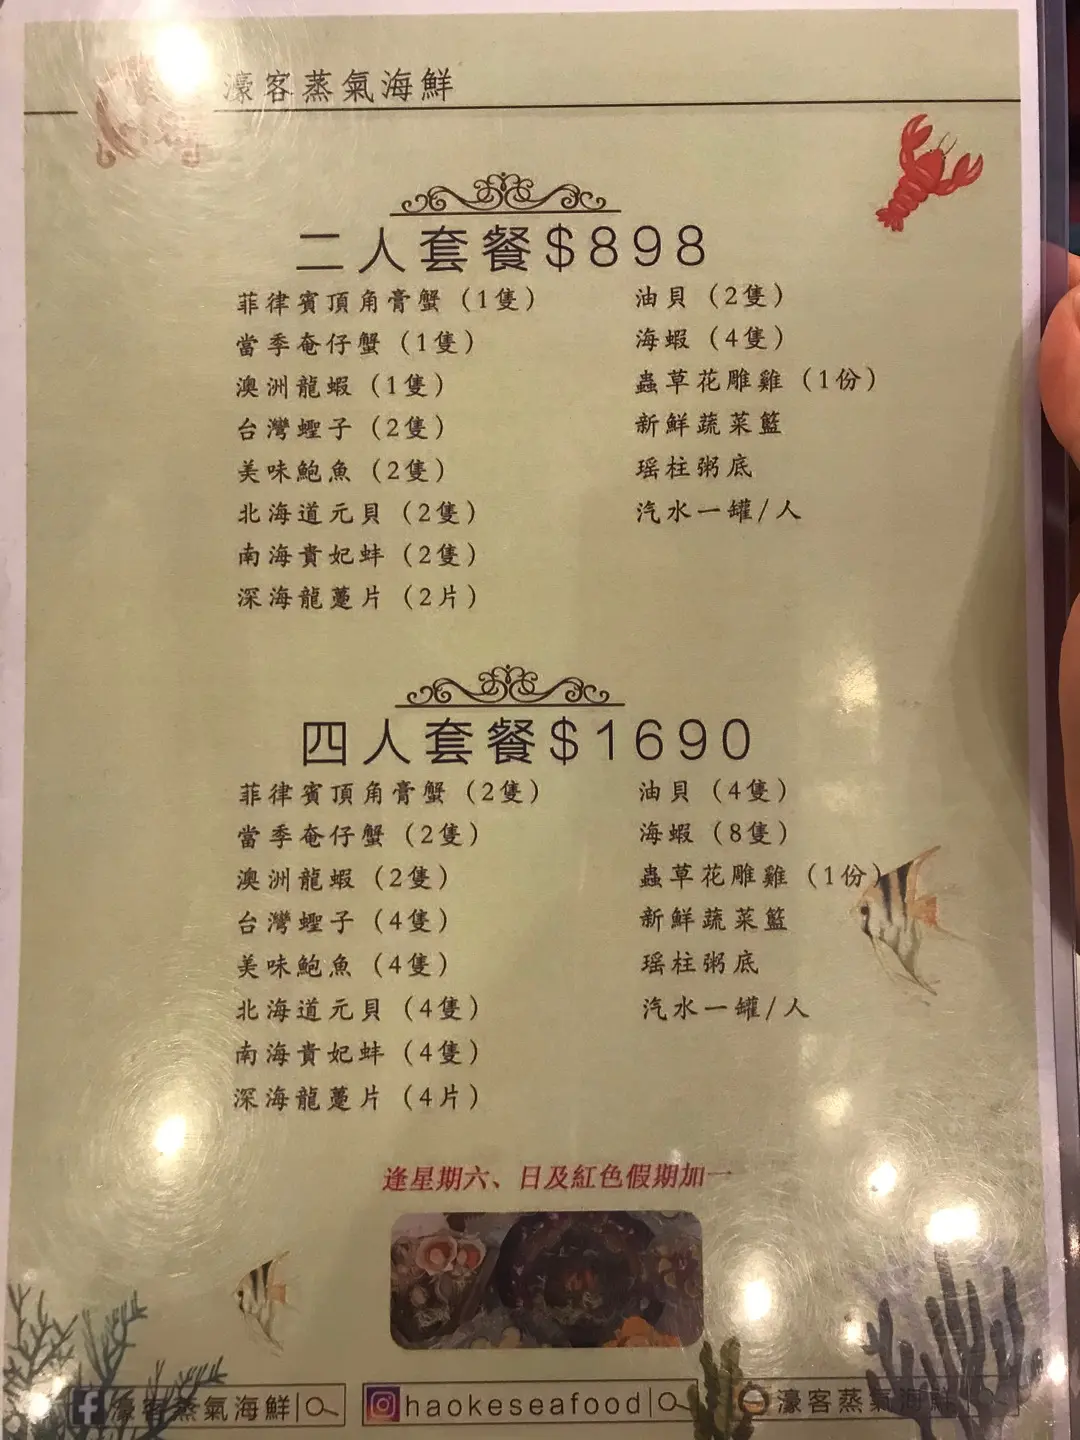 濠客蒸氣海鮮
二人套餐$898
菲律賓頂角膏蟹（1隻）
當季奄仔蟹（1隻）
澳洲龍蝦（1隻）
台灣蟶子（2隻）
美味鮑魚（2隻）
北海道元貝（2隻）
南海貴妃蚌（2隻）
深海龍躉片（2片）
油貝（2隻）
海蝦（4隻）
蟲草花雕雞（1份）
新鮮蔬菜籃
瑶柱粥底
汽水一罐/人
四人套餐$1690
菲律賓頂角膏蟹（2隻）
當季奄仔蟹（2隻）
澳洲龍蝦（2隻）
台灣蟶子（4隻）
美味鮑魚（4隻）
北海道元貝（4隻）
南海貴妃蚌（4隻）
深海龍躉片（4片）
油貝（4隻）
海蝦（8隻）
蟲草花雕雞（1份）
新鮮蔬菜籃
瑶柱粥底
汽水一罐/人
逢星期六、日及紅色假期加一
濠客蒸氣海鮮
haokeseafood
濠客蒸氣海鮮